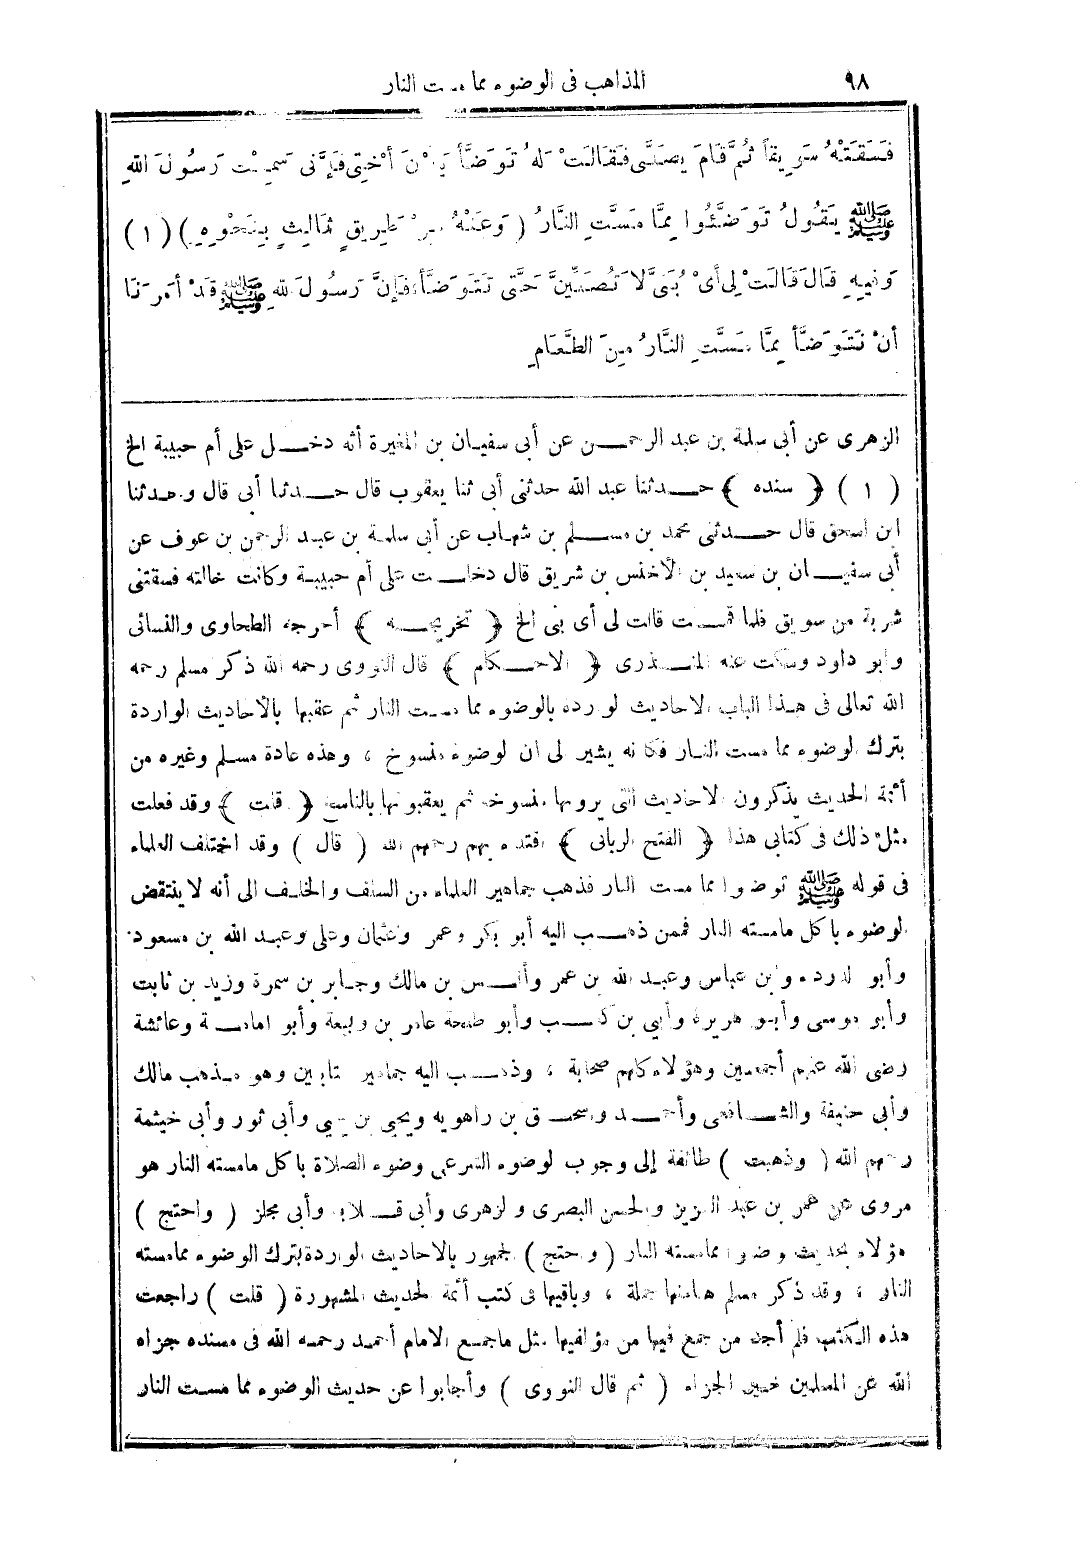 ٩٨ المذاهب فى الوضوء مما مست النار
فَسَقَتْهُ سَوِيقاً ثُمَّ قَامَ يُصَلِّى فَقَالَتْ لَهُ تَوَضَّأْ يَا ابْنَ أُخْتِى فَإِنِّى سَمِعْتُ رَسُولَ اللهِ
ﷺ يَقُولُ تَوَضَّئُوا مِمَّا مَسَّتِ النَّارُ (وَعَنْهُ مِنْ طَرِيقٍ ثَالِثٍ بِنَحْوِهِ) (١)
وَفِيهِ قَالَ قَالَتْ لِى أَىْ بُنَىَّ لَا تُصَلِّيَنَّ حَتَّى تَتَوَضَّأَ، فَإِنَّ رَسُولَ اللهِ ﷺ قَدْ أَمَرَنَا
أَنْ نَتَوَضَّأَ مِمَّا مَسَّتِ النَّارُ مِنَ الطَّعَامِ
الزهرى عن أبى سلمة بن عبد الرحمن عن أبى سفيان بن المغيرة أنه دخل على أم حبيبة الخ
(١) {سنده} حدثنا عبد الله حدثنى أبى ثنا يعقوب قال حدثنا أبى قال وحدثنا
ابن اسحق قال حدثنى محمد بن مسلم بن شهاب عن أبى سلمة بن عبد الرحمن بن عوف عن
أبى سفيان بن سعيد بن الأخنس بن شريق قال دخلت على أم حبيبة وكانت خالته فسقتنى
شربة من سويق فلما قمت قالت لى أى بنى الخ {تخريجه} أخرجه الطحاوى والنسائى
وأبو داود وسكت عنه المنذرى {الاحكام} قال النووى رحمه الله ذكر مسلم رحمه
الله تعالى فى هذا الباب الاحاديث الواردة بالوضوء مما مست النار ثم عقبها بالأحاديث الواردة
بترك الوضوء مما مست النار فكأنه يشير الى ان الوضوء منسوخ ، وهذه عادة مسلم وغيره من
أئمة الحديث يذكرون الاحاديث التى يرونها منسوخة ثم يعقبونها بالناسخ {قلت} وقد فعلت
مثل ذلك فى كتابى هذا {الفتح الربانى} اقتداء بهم رحمهم الله (قال) وقد اختلف العلماء
فى قوله ﷺ توضوا مما مست النار فذهب جماهير العلماء من السلف والخلف الى أنه لا ينتقض
الوضوء بأكل مامسته النار فممن ذهب اليه أبو بكر وعمر وعثمان وعلى وعبد الله بن مسعود
وأبو الدرداء وابن عباس وعبد الله بن عمر وأنس بن مالك وجابر بن سمرة وزيد بن ثابت
وأبو موسى وأبو هريرة وأبي بن كعب وأبو طلحة عامر بن ربيعة وأبو امامة وعائشة
رضى الله عنهم أجمعين وهؤلاء كلهم صحابة ، وذهب اليه جماهير التابعين وهو مذهب مالك
وأبى حنيفة والشافعى وأحمد واسحق بن راهويه ويحيى بن يحيى وأبى ثور وأبى خيثمة
رحمهم الله (وذهبت) طائفة إلى وجوب الوضوء الشرعى وضوء الصلاة بأكل مامسته النار هو
مروى عن عمر بن عبد العزيز والحسن البصرى والزهرى وأبى قلابة وأبى مجلز (واحتج)
هؤلاء بحديث توضوا مما مسته النار (واحتج) الجمهور بالاحاديث الواردة بترك الوضوء مما مسته
النار ، وقد ذكر مسلم هنا منها جملة ، وباقيها فى كتب أئمة الحديث المشهورة (قلت) راجعت
هذه الكتب فلم أجد من جمع فيها من مؤلفيها مثل ماجمع الامام أحمد رحمه الله فى مسنده جزاه
الله عن المسلمين خير الجزاء (ثم قال النووى) وأجابوا عن حديث الوضوء مما مست النار